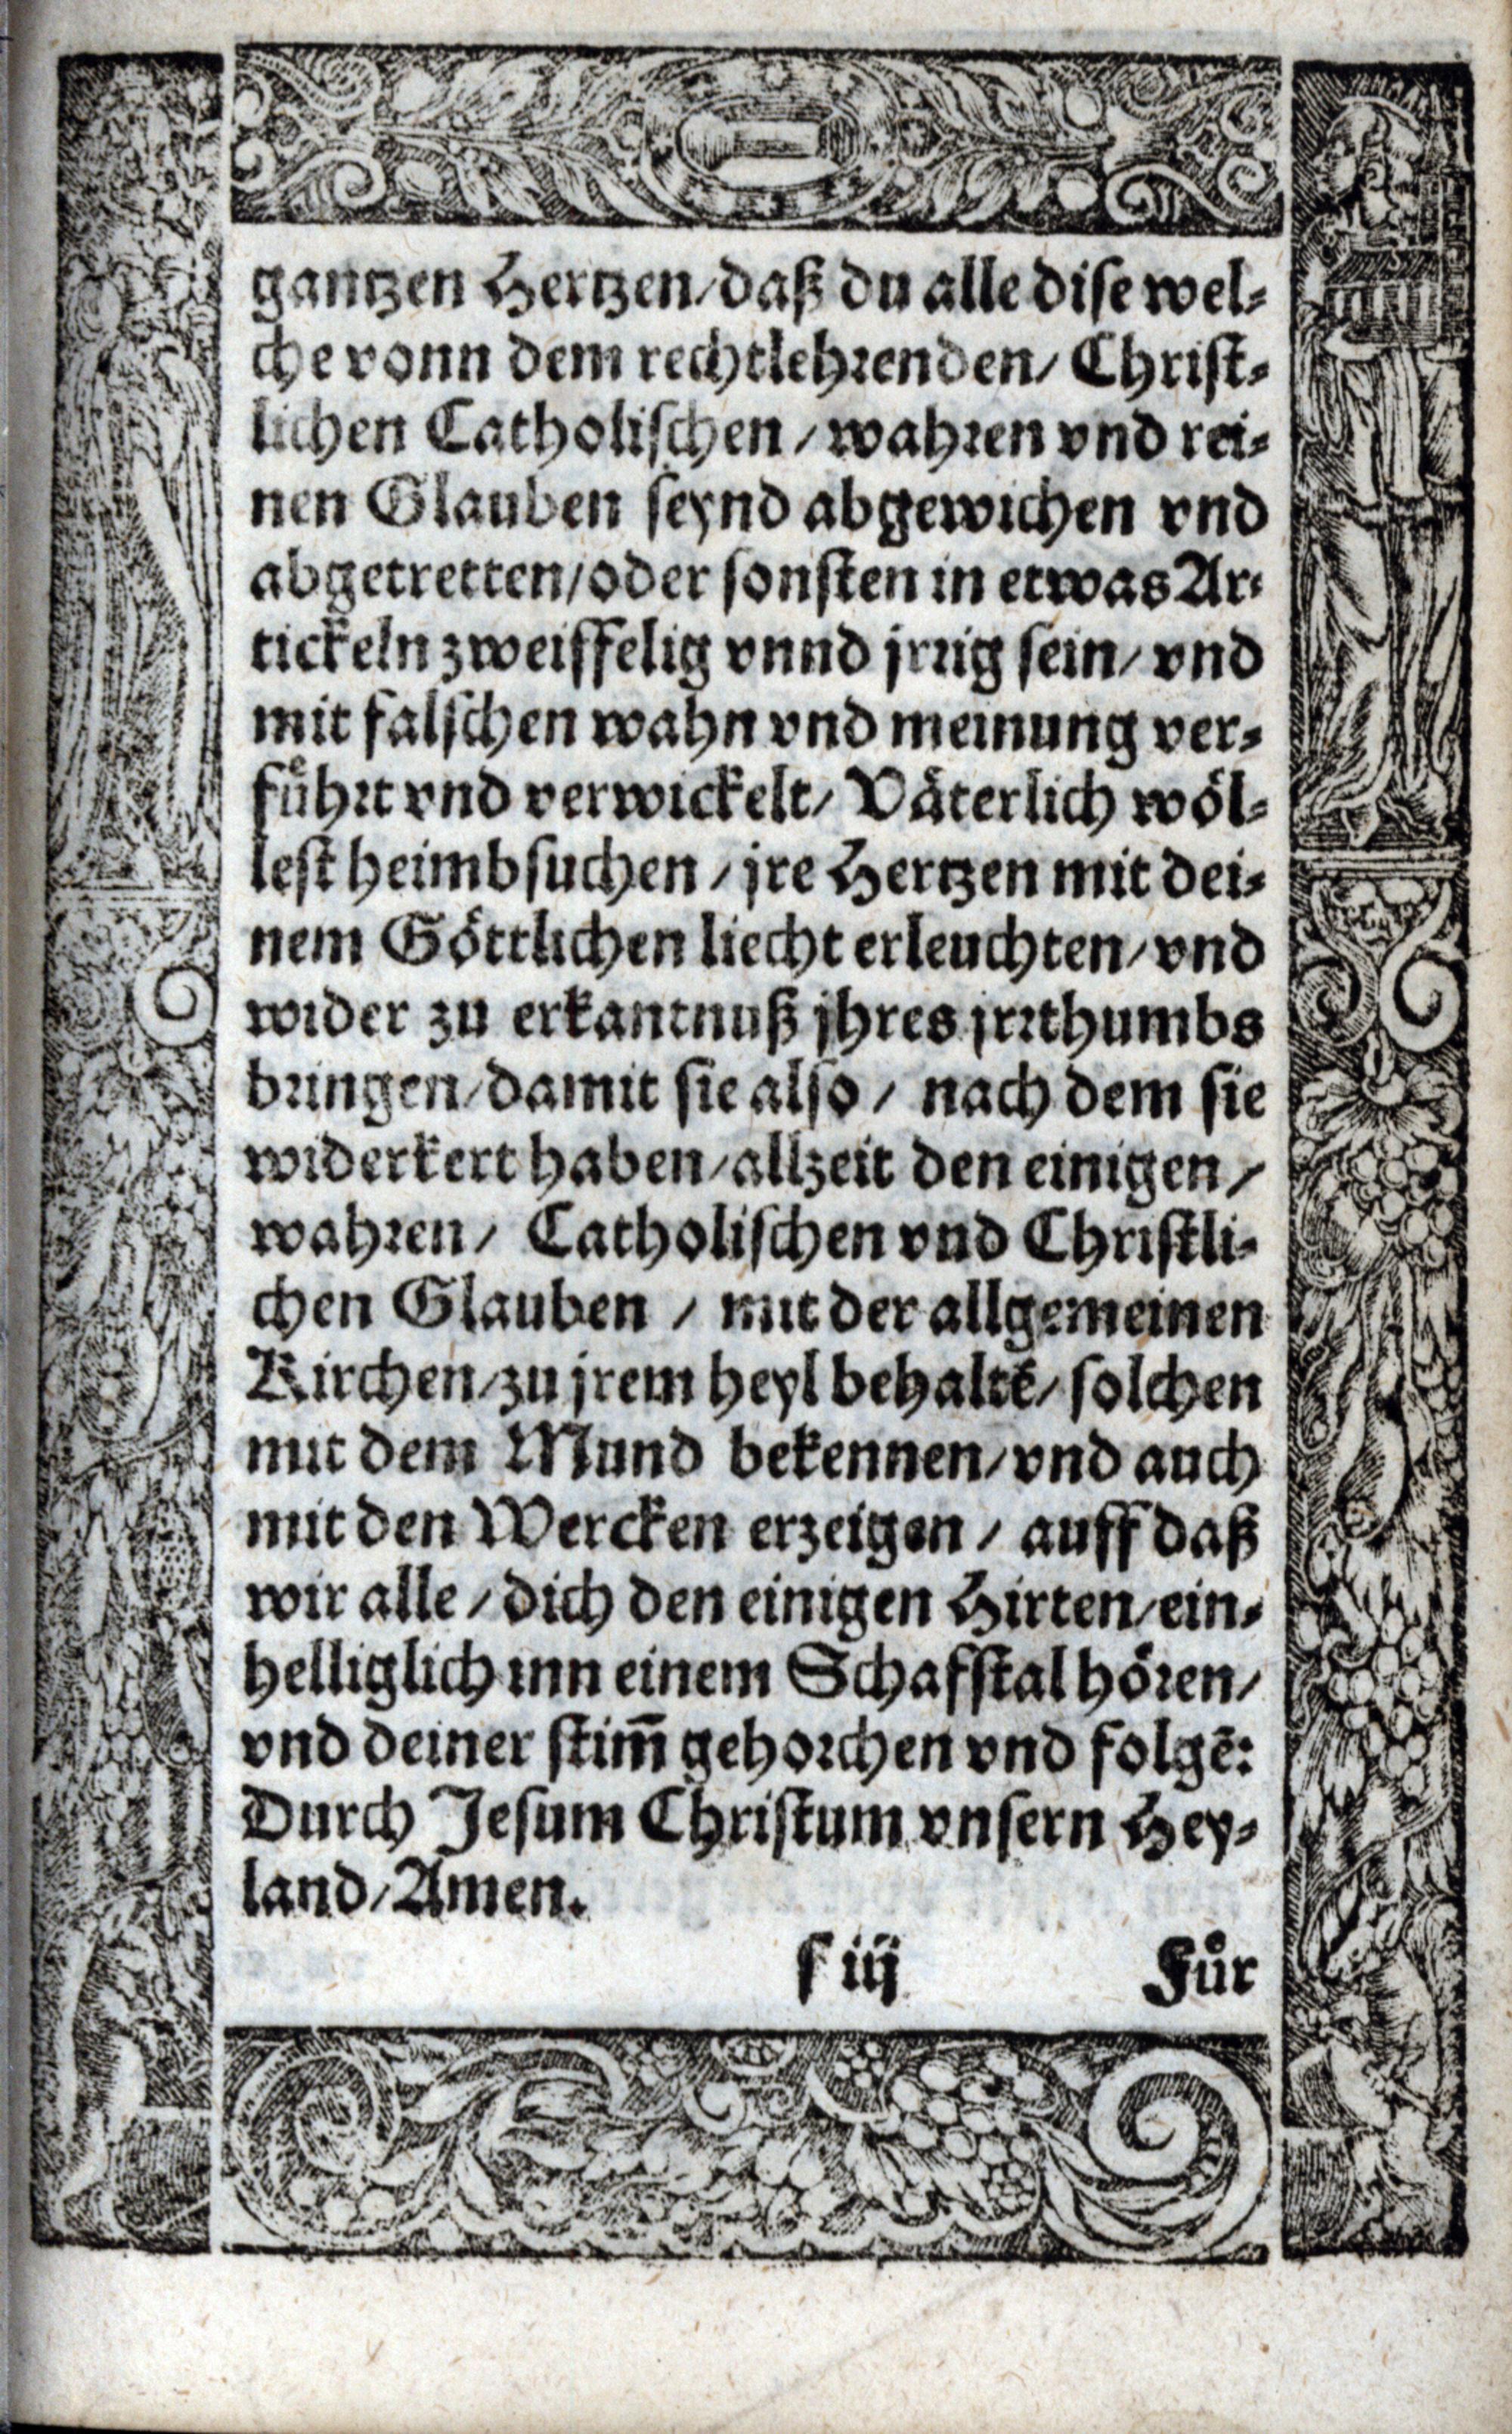 gantzen Hertzen/daß du alle dise wel⸗
che vonn dem rechtlehrenden/ Christ⸗
lichen Catholischen / wahren vnd rei⸗
nen Glauben seynd abgewichen vnd
abgetretten/oder sonsten in etwas Ar⸗
tickeln zweiffelig vnnd jrrig sein/ vnd
mit falschen wahn vnd meinung ver⸗
fuͤhrt vnd verwickelt/ Vaͤterlich woͤl⸗
lest heimbsuchen / jre Hertzen mit dei⸗
nem Goͤttlichen liecht erleuchten/ vnd
wider zu erkantnuß jhres jrrthumbs
bringen/damit sie also / nach dem sie
widerkert haben/allzeit den einigen /
wahren / Catholischen vnd Christli⸗
chen Glauben / mit der allgemeinen
Kirchen/zu jrem heyl behaltē/ solchen
mit dem Mund bekennen/vnd auch
mit den Wercken erzeigen / auff daß
wir alle / dich den einigen Hirten/ein⸗
helliglich inn einem Schafstal hoͤren/
vnd deiner stim̄ gehorchen vnd folgē:
Durch Jesum Christum vnsern Hey⸗
land/Amen.
f iij Fuͤr